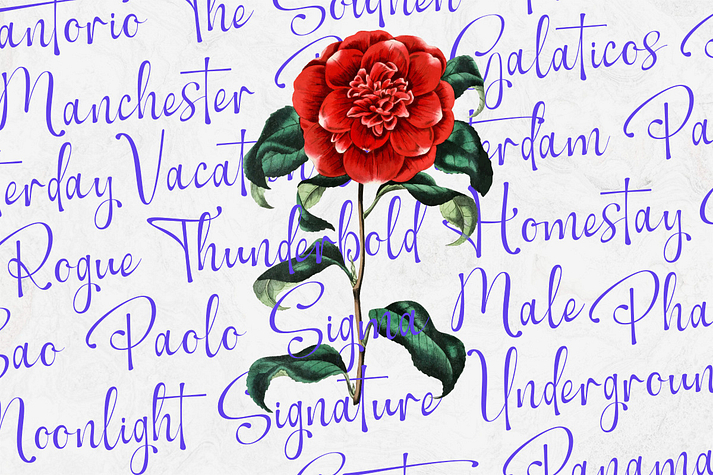 antorio The
Manchester Galaticos
terday Vacation erdam Pa
Rogue Thunderbold Homestay
Sao Paolo Sigma Male Pha
Moonlight Signature Undergroun
Panama